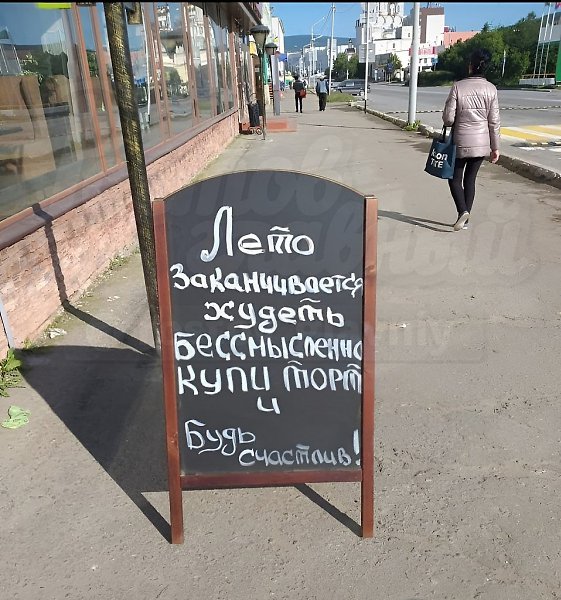 Лето
Заканчивается
худеть
Бессмысленно
купи торт
и
Будь
счастлив!